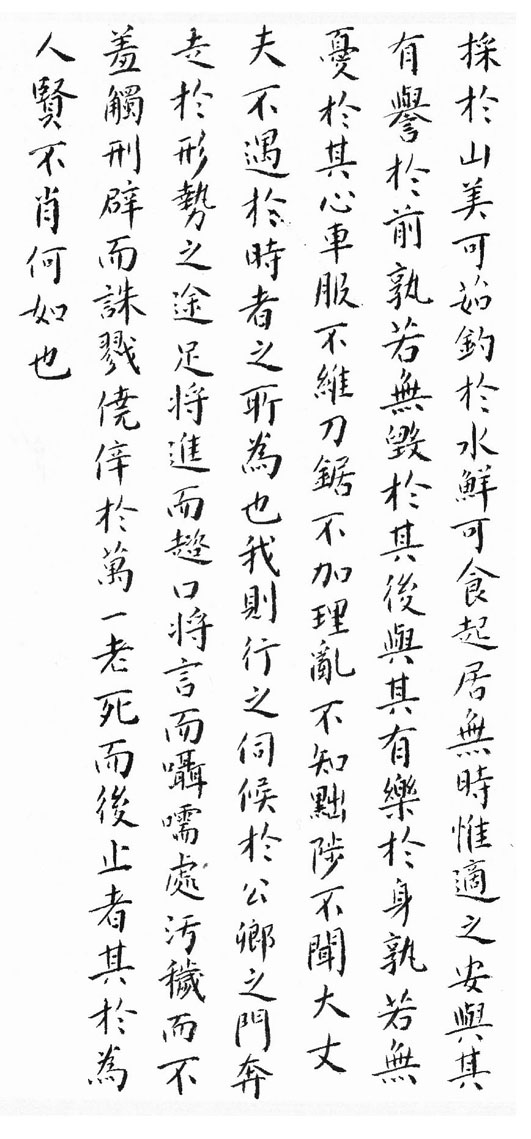 採於山美可茹釣於水鮮可食起居無時惟適之安與其
有譽於前孰若無毀於其後與其有樂於身孰若無
憂於其心車服不維刀鋸不加理亂不知黜陟不聞大丈
夫不遇於時者之所為也我則行之伺候於公卿之門奔
走於形勢之途足将進而趑口将言而囁嚅處污穢而不
羞觸刑辟而誅戮僥倖於萬一老死而後止者其於為
人賢不肖何如也